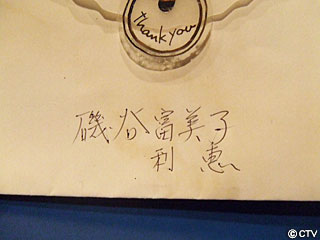 thank you
磯谷富美子
利恵
© CTV